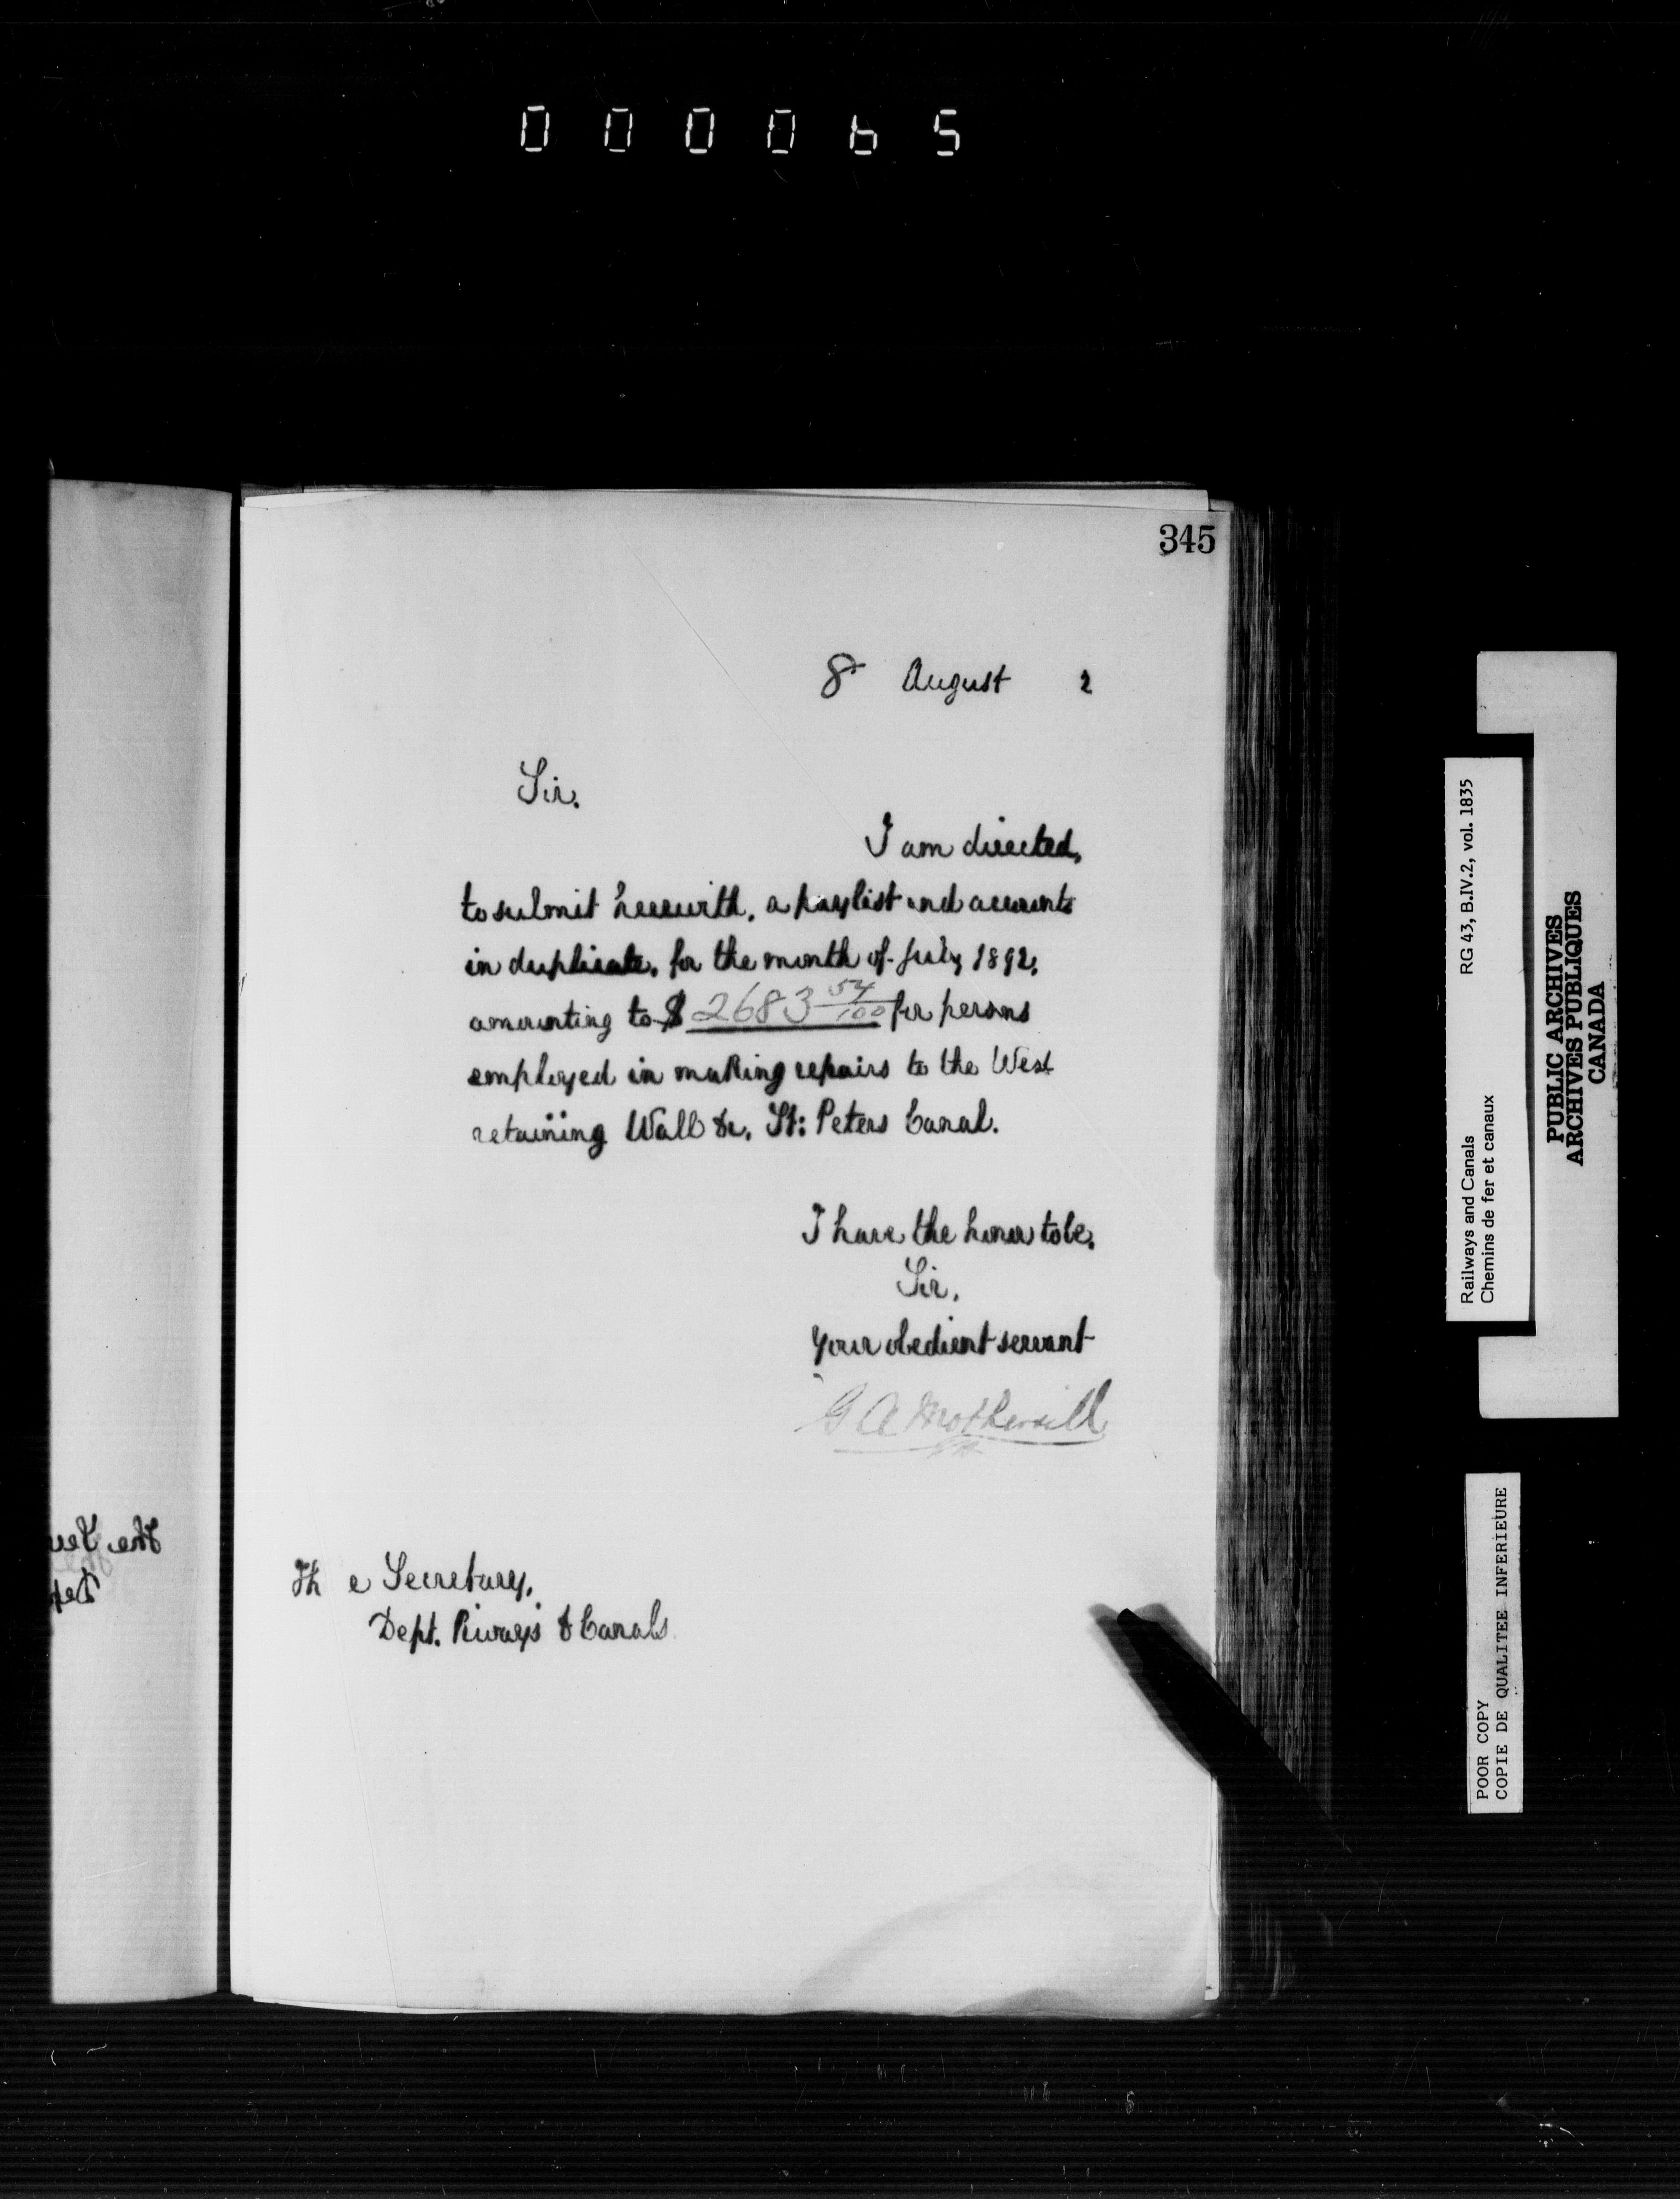 000065
345
8 August 2
Sir.
I am directed,
to submit herewith, a paylist and accounts
in duplicate, for the month of July 1892,
amounting to $ 2683 54/100 for persons
employed in making repairs to the West
retaining Wall &c, St: Peters Canal.
I have the honor to be,
Sir,
Your obedient servant
G A Mothersill
The Secretary,
Dept. Riways & Canals
Railways and Canals RG 43, B.IV.2, vol. 1835
Chemins de fer et canaux
PUBLIC ARCHIVES
ARCHIVES PUBLIQUES
CANADA
POOR COPY
COPIE DE QUALITEE INFERIEURE